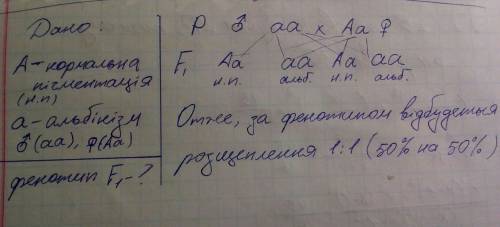 Дано:
А-нормальна
пігментація
(н.п)
а-альбінізм
♂(аа), ♀(Аа)
фенотип F₁-?
Р ♂ аа х Аа ♀
F₁ Аа аа Аа аа
н.п. альб. н.п. альб.
Отже, за фенотипом відбудеться
розщеплення 1:1 (50% на 50%)